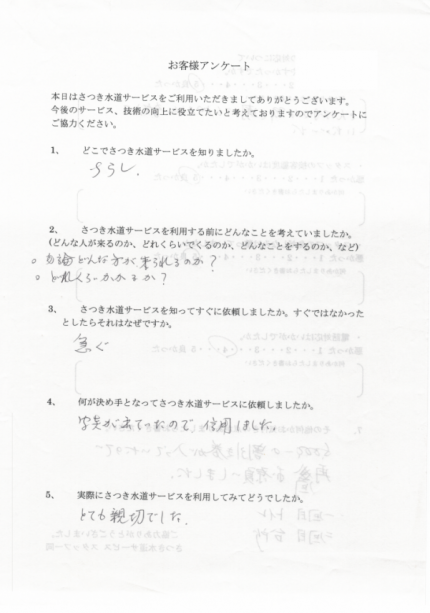 お客様アンケート
本日はさつき水道サービスをご利用いただきましてありがとうございます。
今後のサービス、技術の向上に役立てたいと考えておりますのでアンケートに
ご協力ください。
1、 どこでさつき水道サービスを知りましたか。
ちらし.
2、 さつき水道サービスを利用する前にどんなことを考えていましたか。
(どんな人が来るのか、どれくらいでくるのか、どんなことをするのか、など)
○ 勿論どんな方が来られるのか?
○ どれくらいかかるか?
3、 さつき水道サービスを知ってすぐに依頼しましたか。すぐではなかった
としたらそれはなぜですか。
急ぐ
4、 何が決め手となってさつき水道サービスに依頼しましたか。
写真が出ていたので 信用しました。
5、 実際にさつき水道サービスを利用してみてどうでしたか。
とても親切でした.